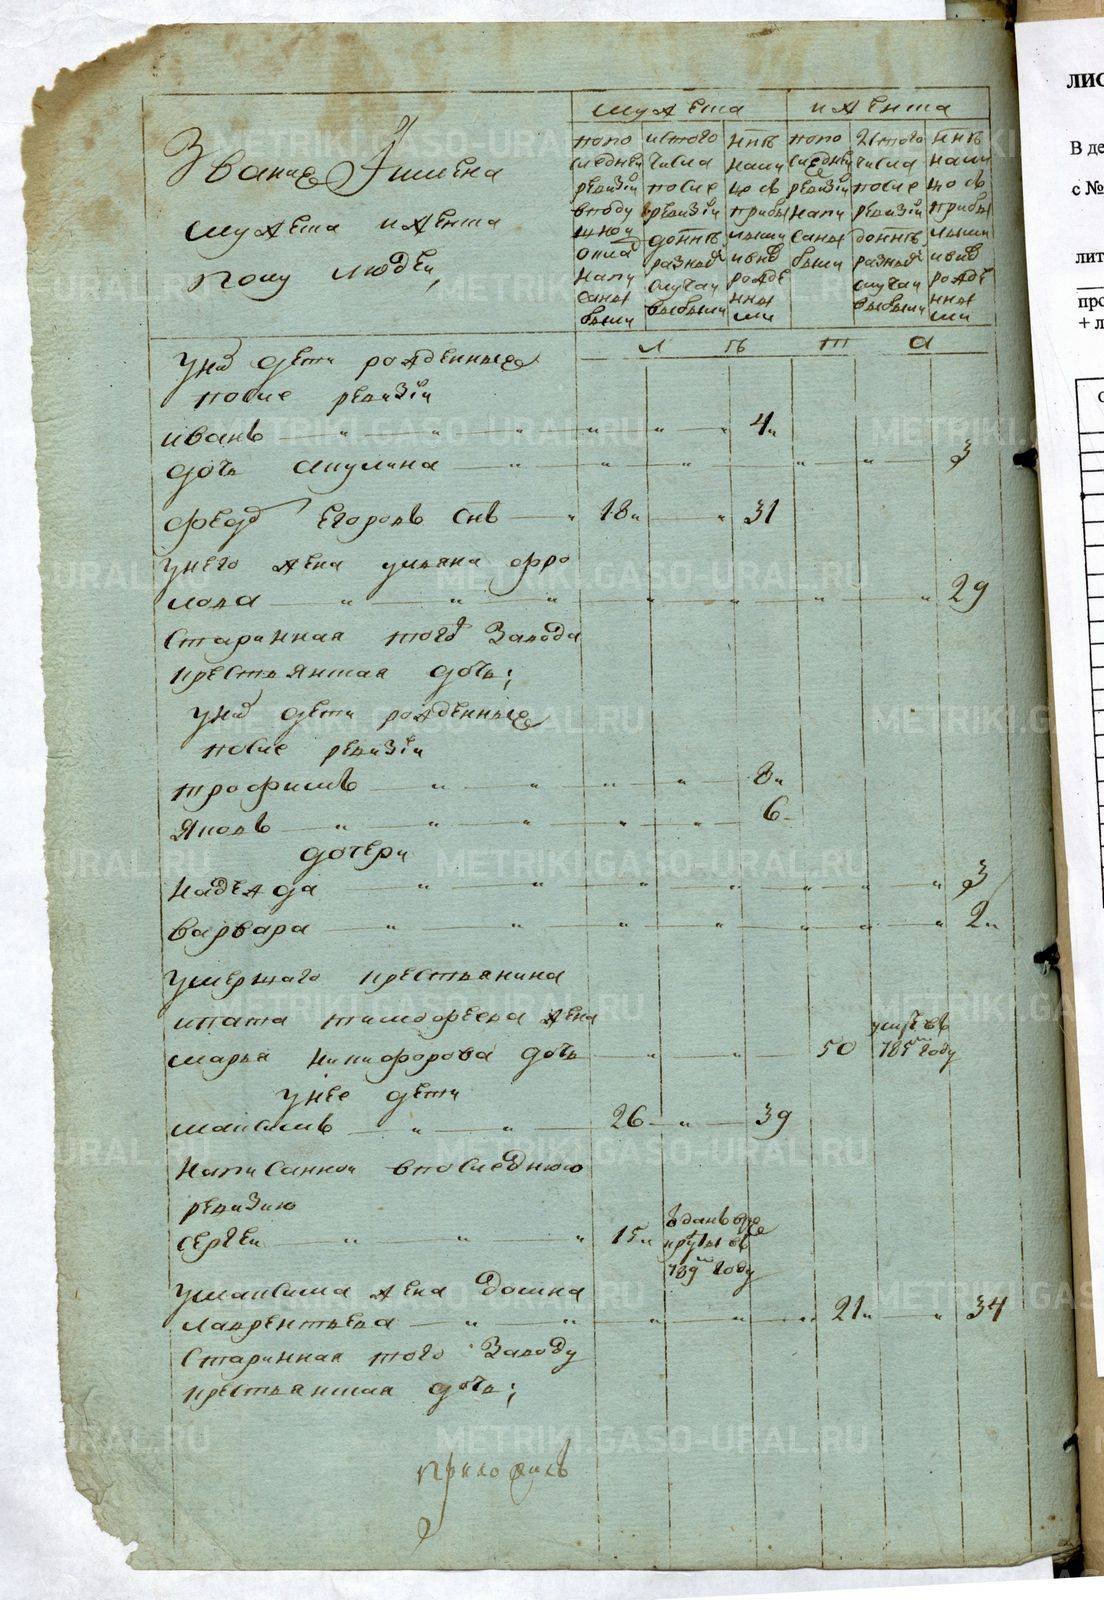 мужеска и женска
Звание и имена
мужеска и женска
полу людей,
по по
следней
ревизіи
в поду
шной
окла
напи
саны
были
ис того
числа
после
ревизіи
до ннѣ
разныя
случаи
выбыли
ннѣ
нали
цо съ
прибы
лыми
и внов
рожде
нны
ми
по по
следней
ревизіи
напи
саны
были
ис того
числа
после
ревизіи
до ннѣ
разныя
случаи
выбыли
ннѣ
нали
цо съ
прибы
лыми
и внов
рожде
нны
ми
л ѣ т а
у них дети рожденные
после ревизіи
иванъ 4
дочь акулина 3
федор егоровъ снъ 18 31
у него жена ульяна фро
лова 29
старинная того завода
крестьянская дочь;
у них дети рожденные
после ревизіи
трофимъ 8
яковъ 6
дочери
надежда 3
варвара 2
умершаго крестьянина
ипата тимофеева жена
марья никифорова дочь 50 умре въ 785м году
у нее дети
максимъ 26 39
написанной в последнюю
ревизию
сергей 15 отданъ в рекруты въ 789м году
у максима жена домна
лаврентьева 21 34
старинная того заводу
крестьянская дочь;
METRIKI.GASO-URAL.RU